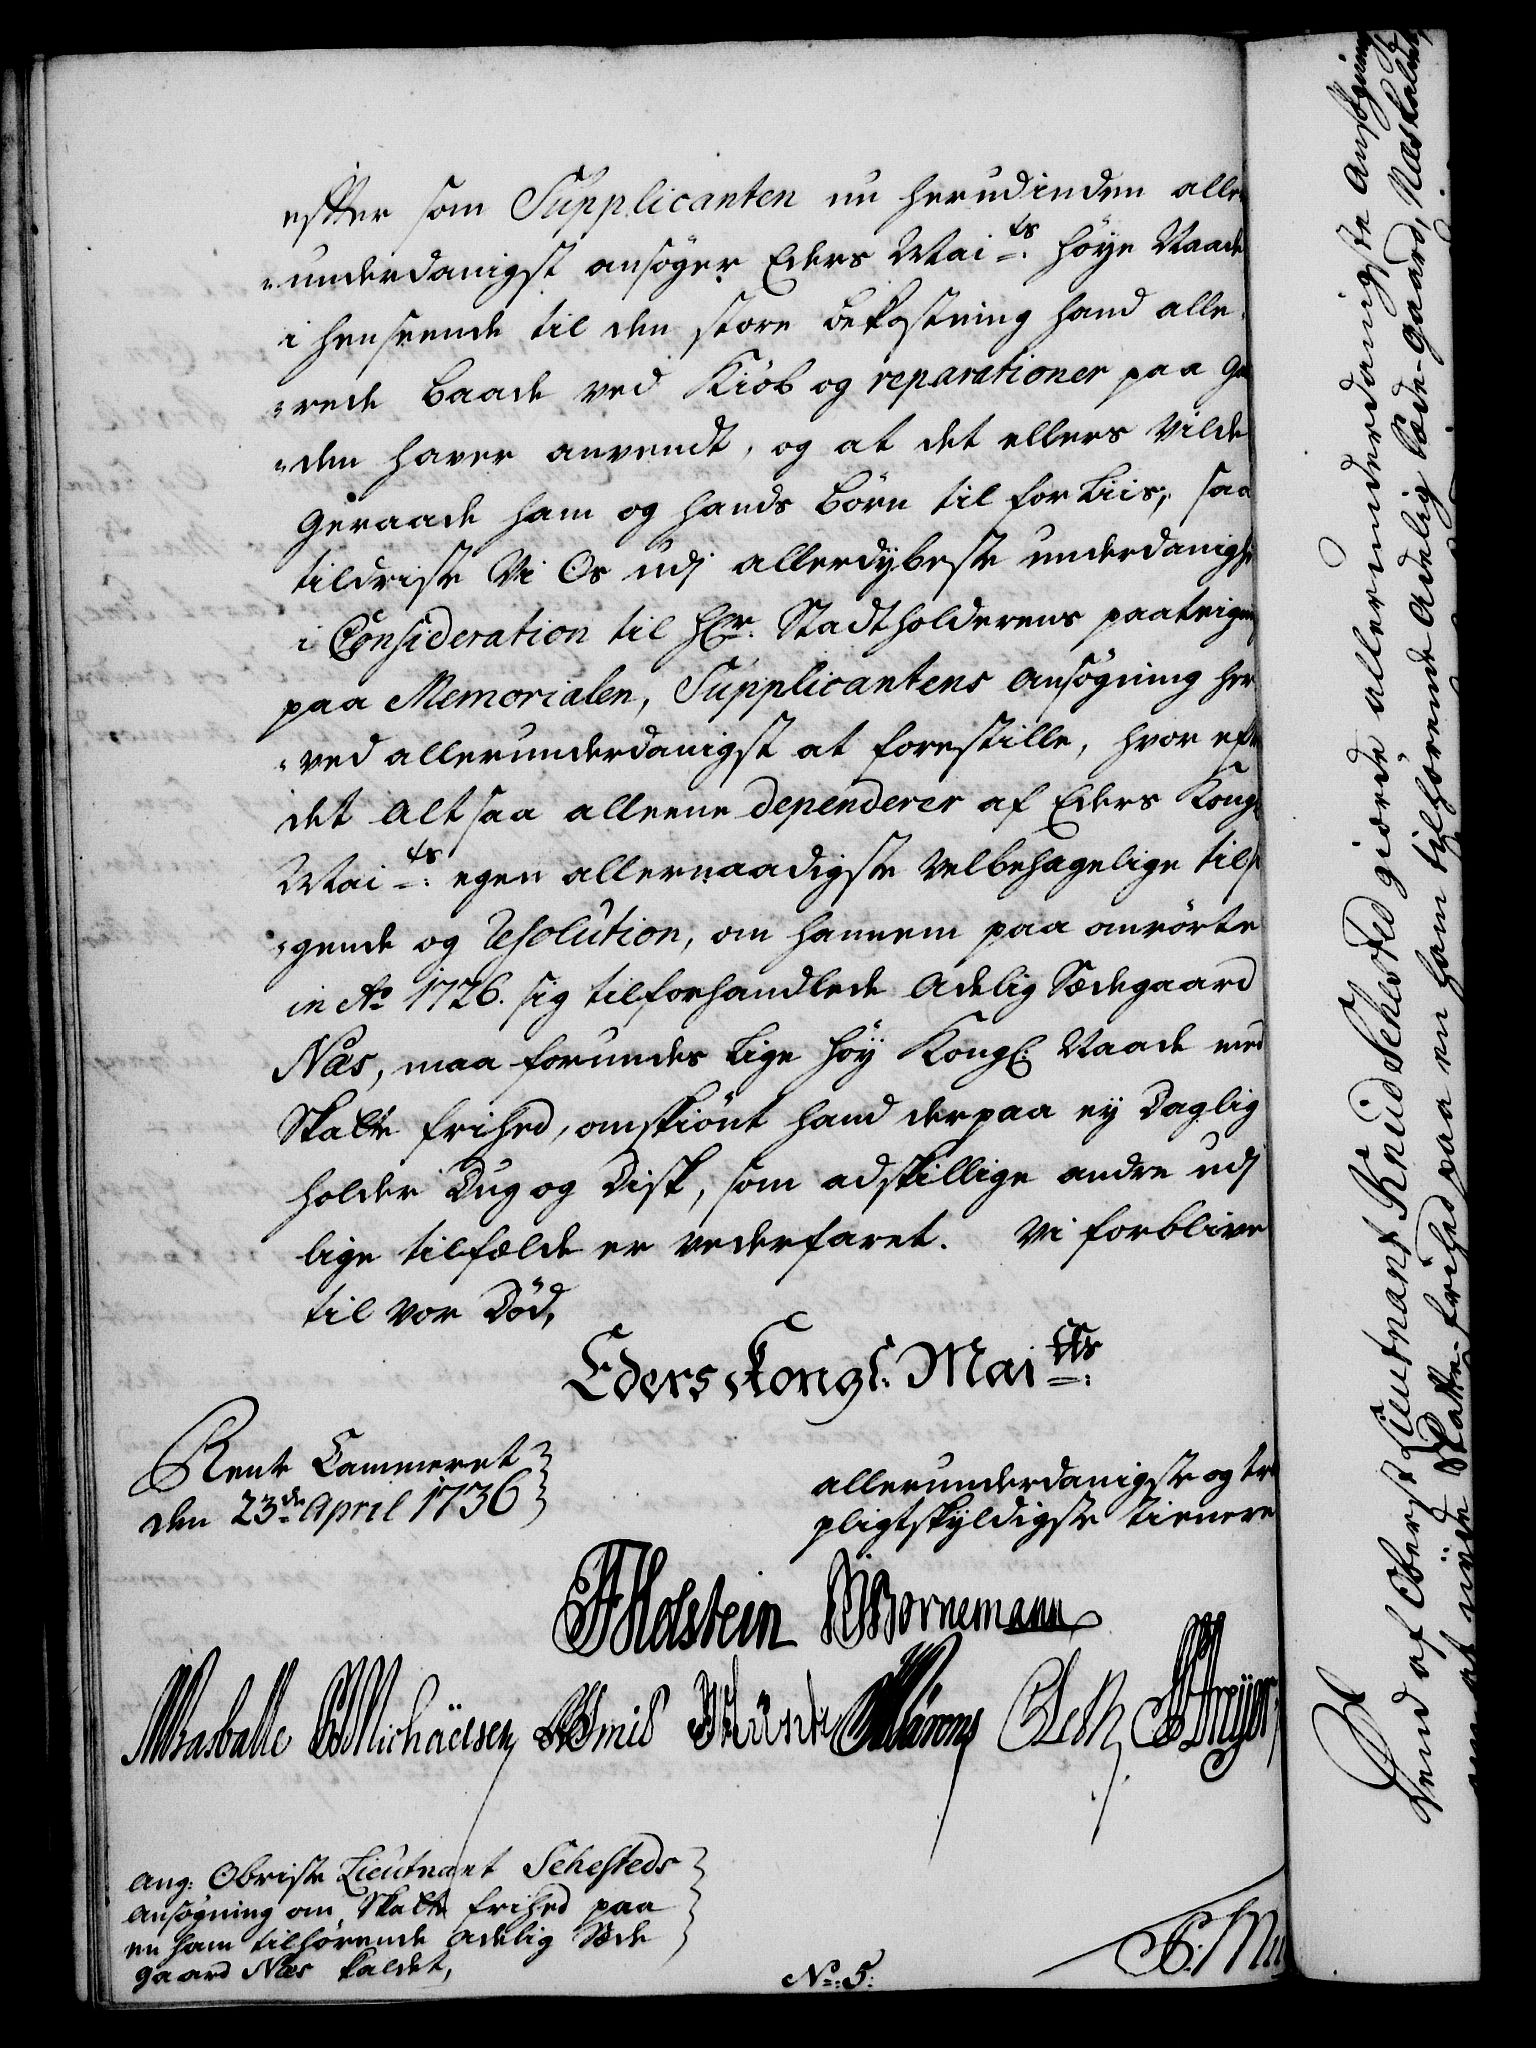 efter som Supplicanten nu herudinden aller
-underdanigst ansöger Eders Mai:ts höye Naade
i henseende til den store bekostning hand alle-
-rede baade ved Kiöb og reparationer paa Gaar
-den haver anvendt, og at det ellers vilde
geraade ham og hands börn til forliis; saa
tildriste Vi Os udj allerdybeste underdanighed
i Consideration til Hr. Stadtholderens paateigning
paa Memorialen, Supplicantens ansögning her
-ved allerunderdanigst at forestille, hvor efter
det altsaa alleene dependerer af Eders Kongl.
Mai:ts egen allernaadigste velbehagelige tilsi
-gende og Resolution, om hannem paa anrörte
in Ao 1726. sig tilforhandlede adelig Sædegaard
Næs, maa forundes lige höy Kongl: Naade med
Skatte frihed, omskiönt hand derpaa ey daglig
holder Dug og Disk, som adskillige andre udj
lige tilfælde er vederfaret. Vi forblive
til vor Död,
Eders Kongl: Mai:tts
Rente Cammeret
den 23de April 1736
allerunderdanigste og tro
pligtskyldigste tienere
Holstein Bornemann
Braballe Michäelsen
ang: Obriste Lieutnant Schesteds
ansögning om Skatte frihed paa
en ham tilhörende adelig Sæde
gaard Næs kaldet,
No: 5:
Den af Oberst Lieutnant Knud Schested giorde allerunderdanigste ansögning
om at nyde Skatte-frihed paa en ham tilhörende Adelig Sæde-Gaard, Næs kaldet